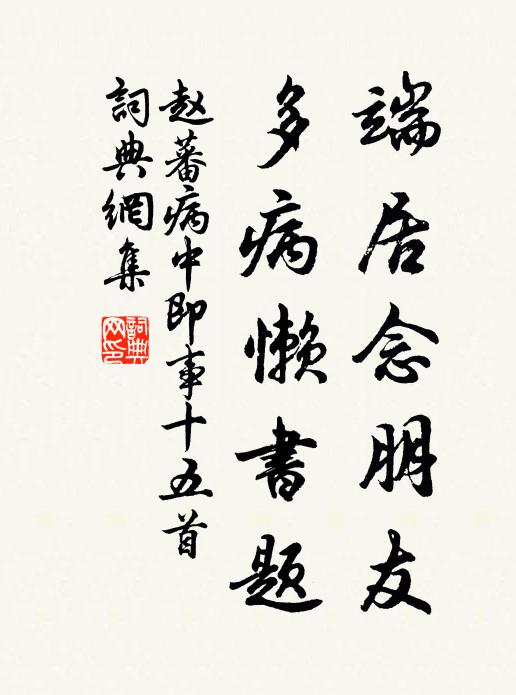 端居念朋友
多病懒書題
赵蕃病中即事十五首
詞典網集
詞典网印